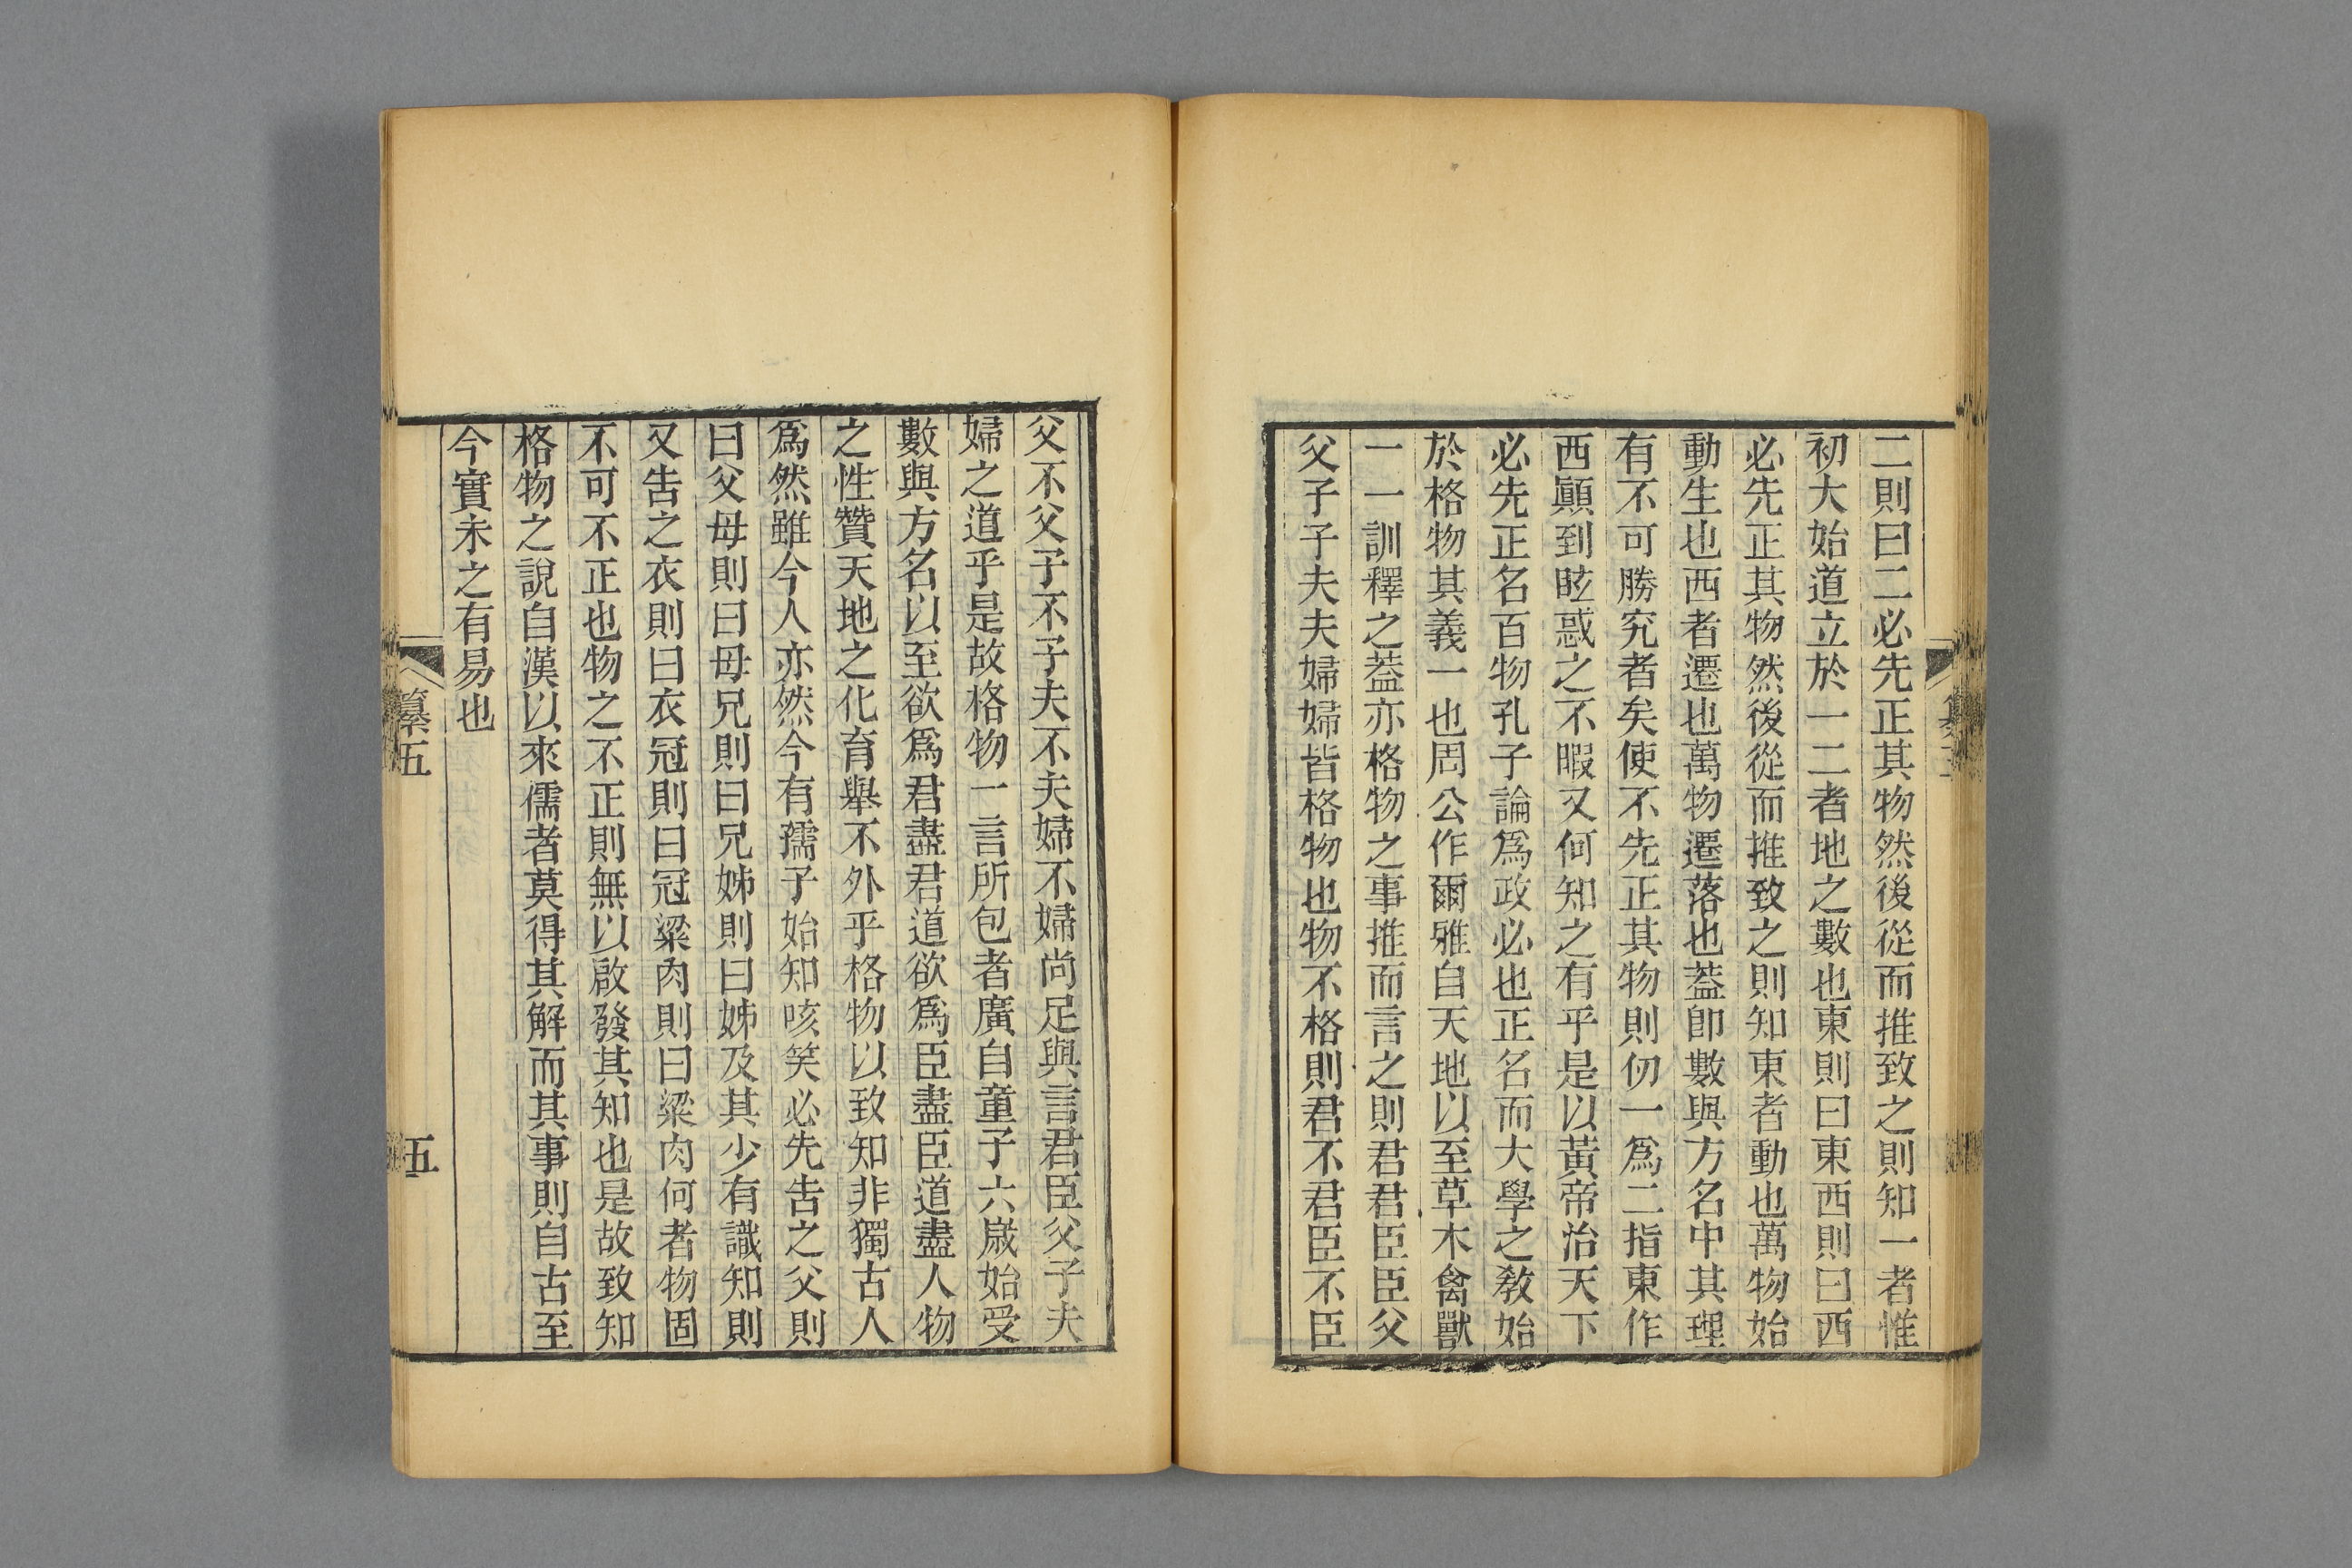 二則曰二必先正其物然後從而推致之則知一者惟
初大始道立於一二者地之數也東則曰東西則曰西
必先正其物然後從而推致之則知東者動也萬物始
動生也西者遷也萬物遷落也蓋卽數與方名中其理
有不可勝究者矣使不先正其物則仞一爲二指東作
西顚到眩惑之不暇又何知之有乎是以黃帝治天下
必先正名百物孔子論爲政必也正名而大學之敎始
於格物其義一也周公作爾雅自天地以至草木禽獸
一一訓釋之蓋亦格物之事推而言之則君君臣臣父
父子子夫夫婦婦皆格物也物不格則君不君臣不臣
父不父子不子夫不夫婦不婦尚足與言君臣父子夫
婦之道乎是故格物一言所包者廣自童子六歲始受
數與方名以至欲爲君盡君道欲爲臣盡臣道盡人物
之性贊天地之化育舉不外乎格物以致知非獨古人
爲然雖今人亦然今有孺子始知咳笑必先告之父則
曰父母則曰母兄則曰兄姊則曰姊及其少有識知則
又告之衣則曰衣冠則曰冠粱肉則曰粱肉何者物固
不可不正也物之不正則無以啟發其知也是故致知
格物之說自漢以來儒者莫得其解而其事則自古至
今實未之有易也
纂五
五